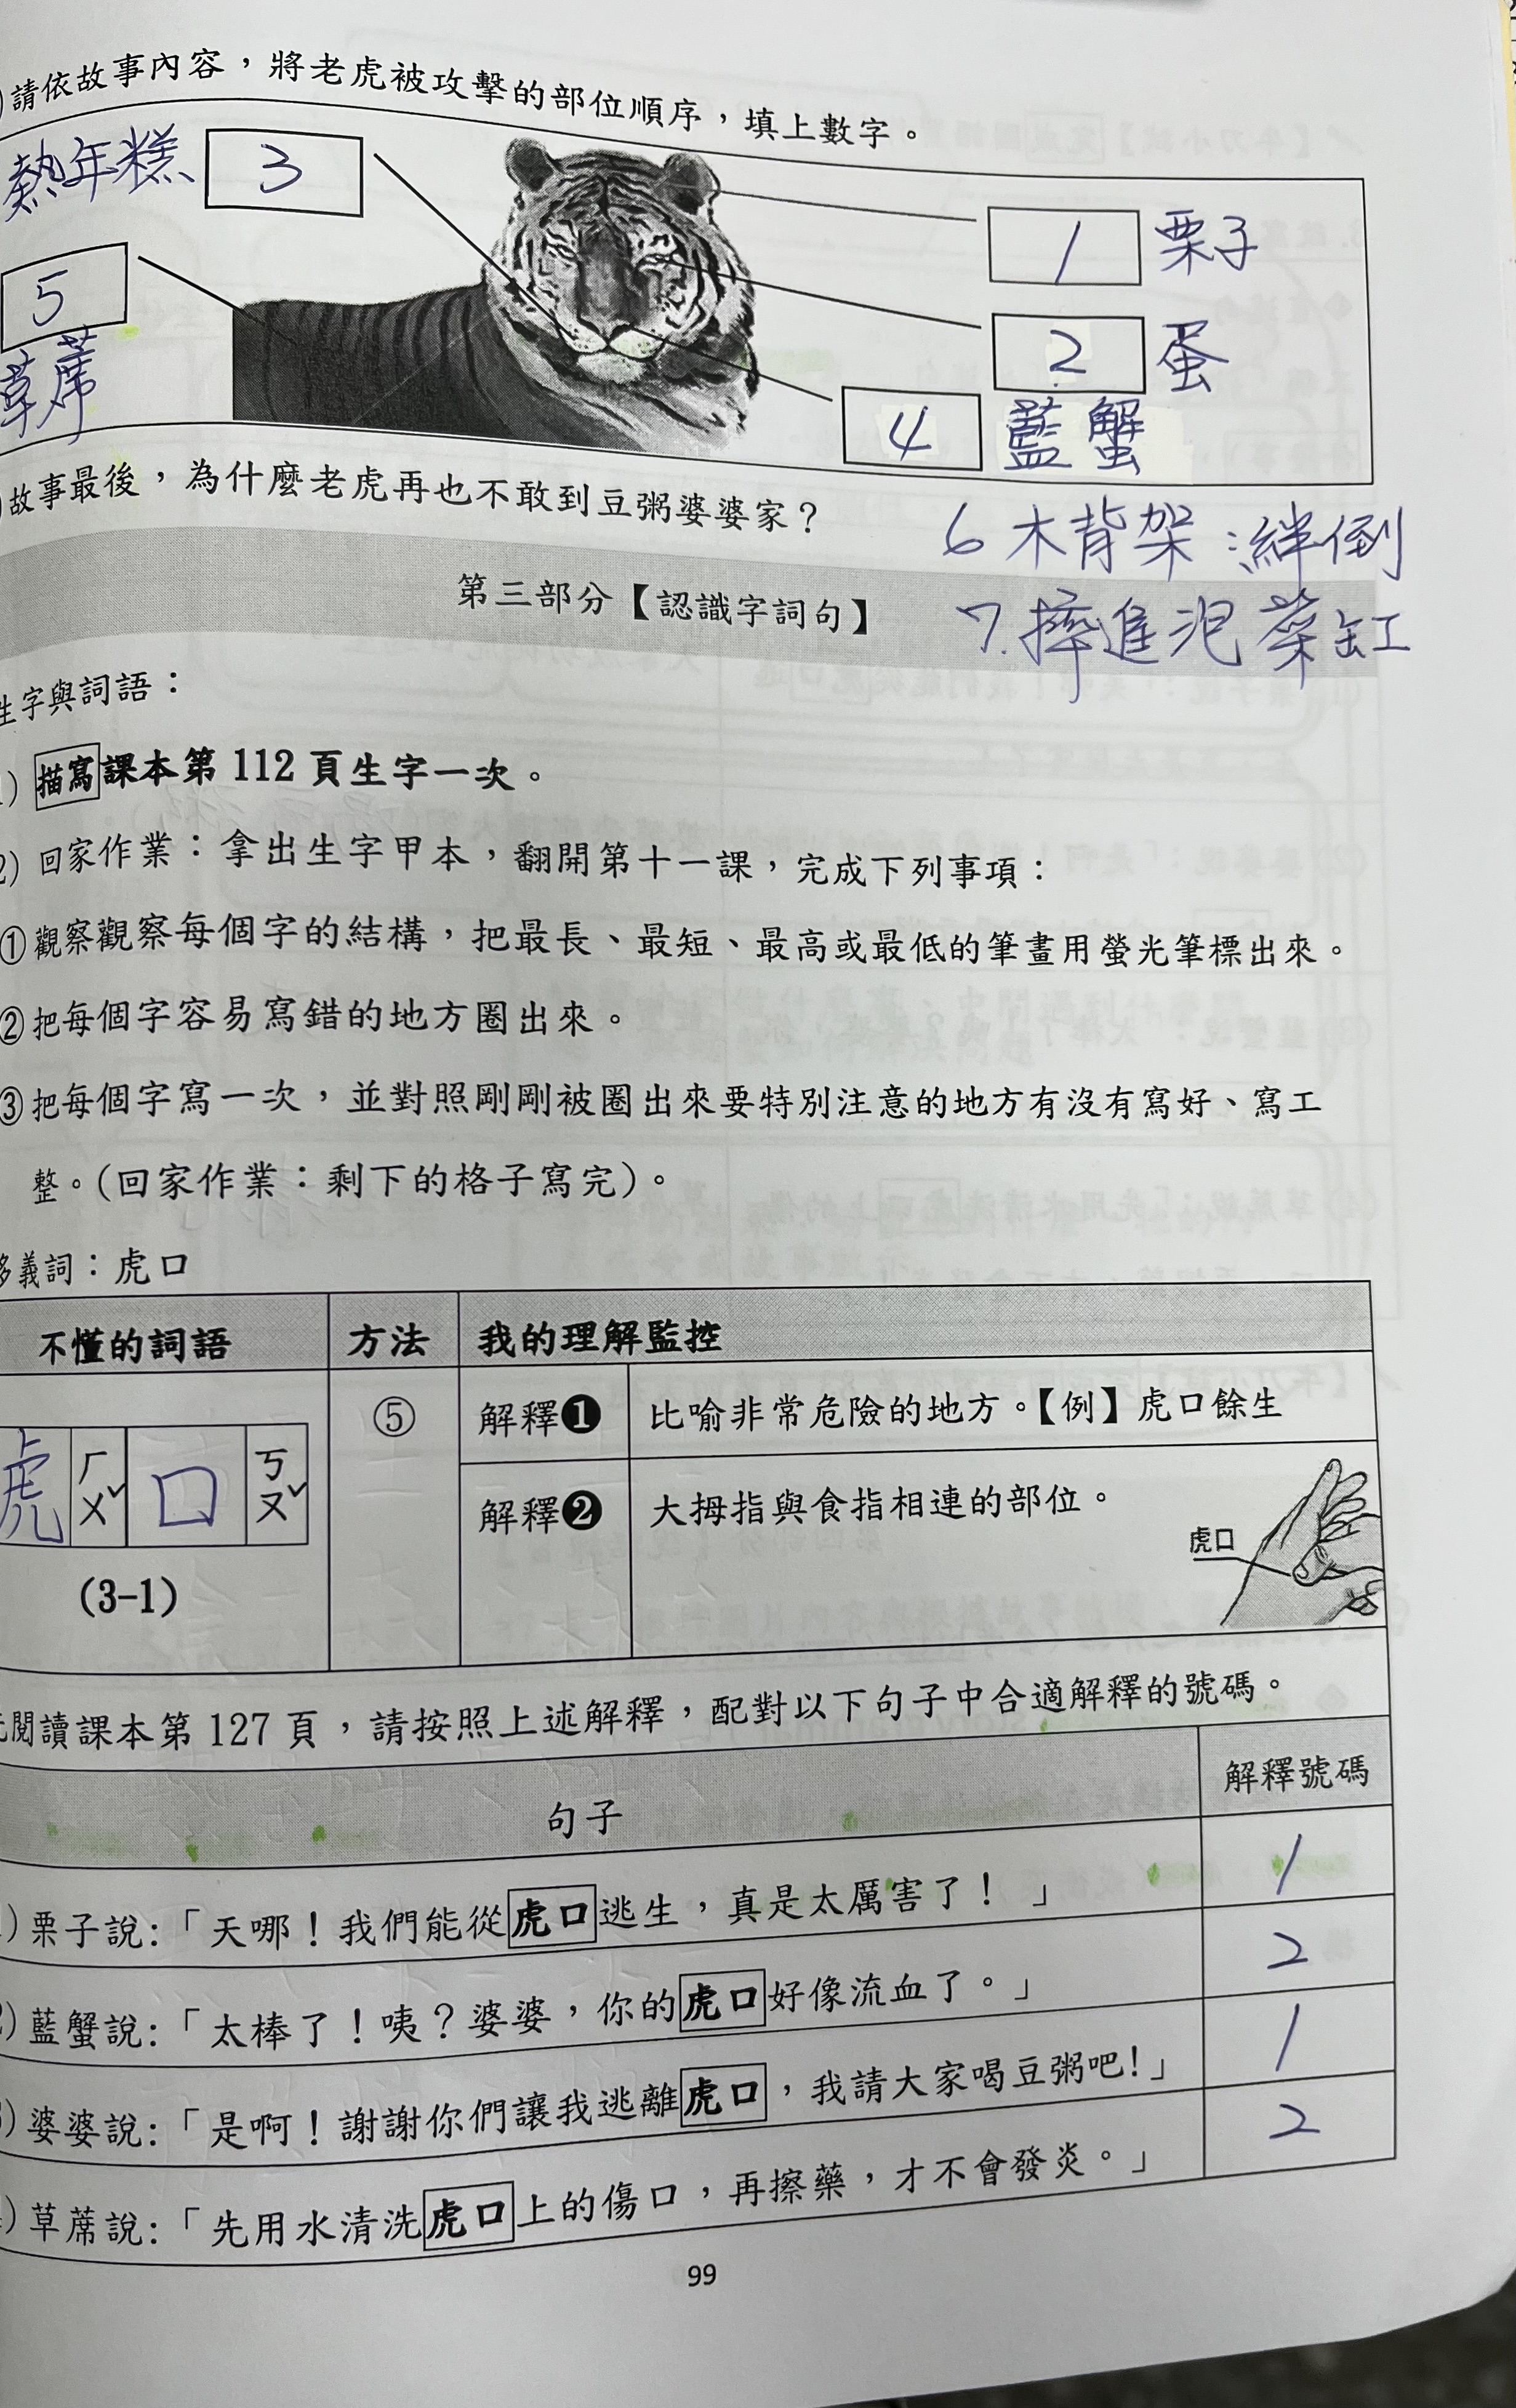 請依故事內容，將老虎被攻擊的部位順序，填上數字。
熱年糕 3
1 栗子
5
草蓆
2 蛋
4 藍蟹
故事最後，為什麼老虎再也不敢到豆粥婆婆家？
6 木背架：絆倒
第三部分【認識字詞句】
7.摔進泡菜缸
生字與詞語：
描寫課本第112頁生字一次。
2) 回家作業：拿出生字甲本，翻開第十一課，完成下列事項：
①觀察觀察每個字的結構，把最長、最短、最高或最低的筆畫用螢光筆標出來。
②把每個字容易寫錯的地方圈出來。
③把每個字寫一次，並對照剛剛被圈出來要特別注意的地方有沒有寫好、寫工
整。(回家作業：剩下的格子寫完)。
多義詞：虎口
不懂的詞語 方法 我的理解監控
虎 ㄏㄨˇ 口 ㄎㄡˇ
(3-1)
⑤
解釋❶ 比喻非常危險的地方。【例】虎口餘生
解釋❷ 大拇指與食指相連的部位。
虎口
閱讀課本第127頁，請按照上述解釋，配對以下句子中合適解釋的號碼。
句子 解釋號碼
) 栗子說：「天哪！我們能從虎口逃生，真是太厲害了！」 1
2) 藍蟹說：「太棒了！咦？婆婆，你的虎口好像流血了。」 2
3) 婆婆說：「是啊！謝謝你們讓我逃離虎口，我請大家喝豆粥吧！」 1
) 草蓆說：「先用水清洗虎口上的傷口，再擦藥，才不會發炎。」 2
99